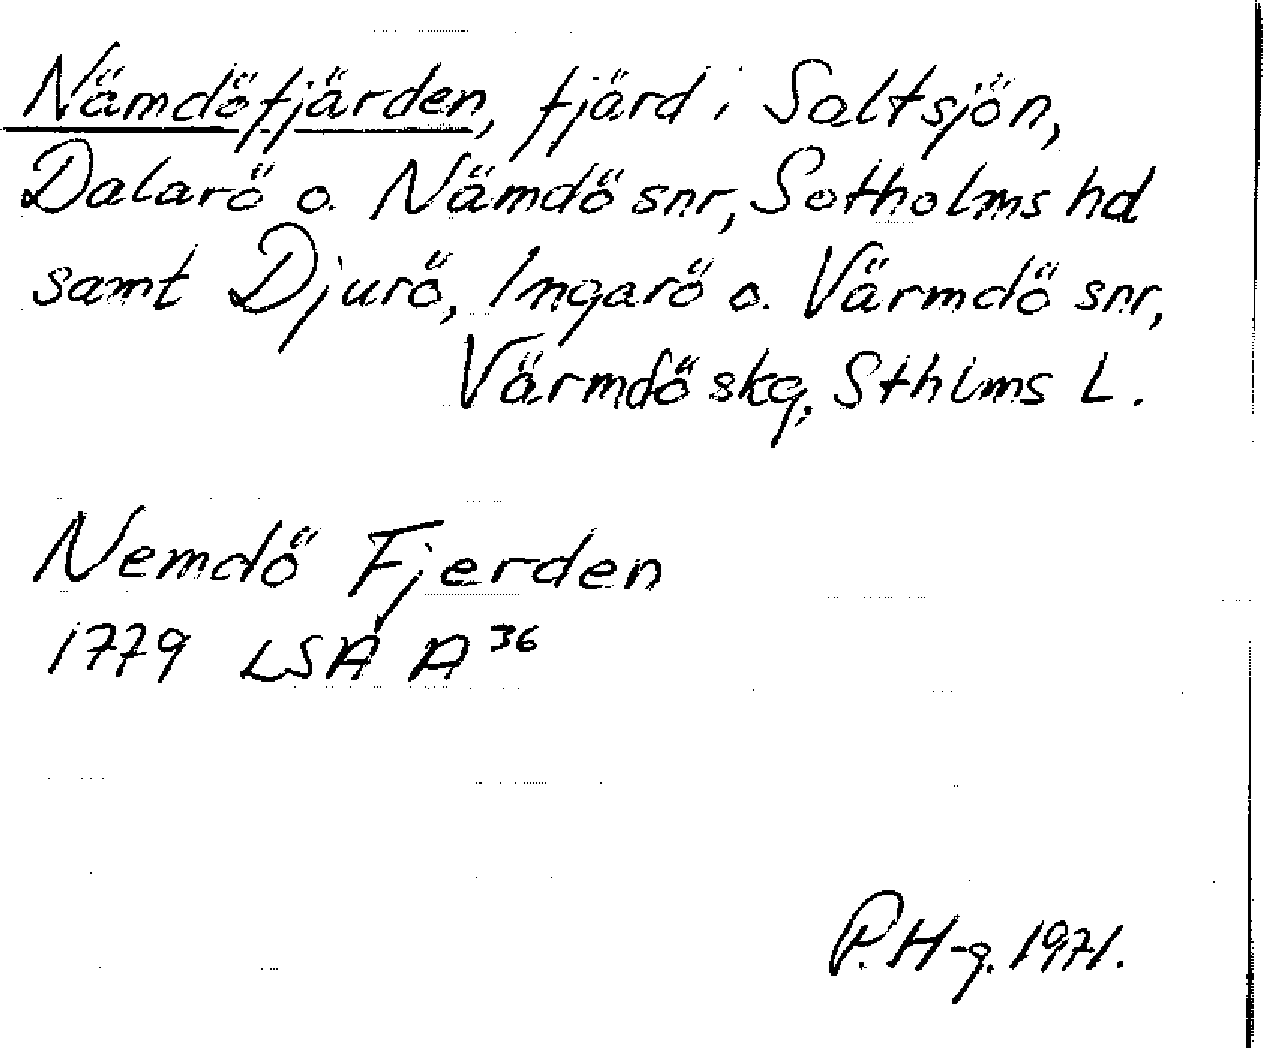 Nämdöfjärden, fjärd i Saltsjön,
Dalarö o. Nämdö snr, Sotholms hd
samt Djurö, Ingarö o. Värmdö snr,
Värmdö skg, Sthlms L.
Nemdö Fjerden
1779 LSA A³⁶
P.H-g. 1971.